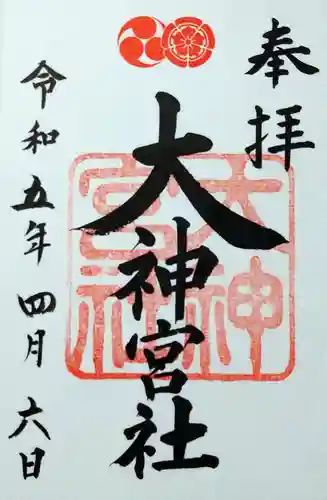 奉拝
大神宮社
令和五年四月六日
大神
宮社